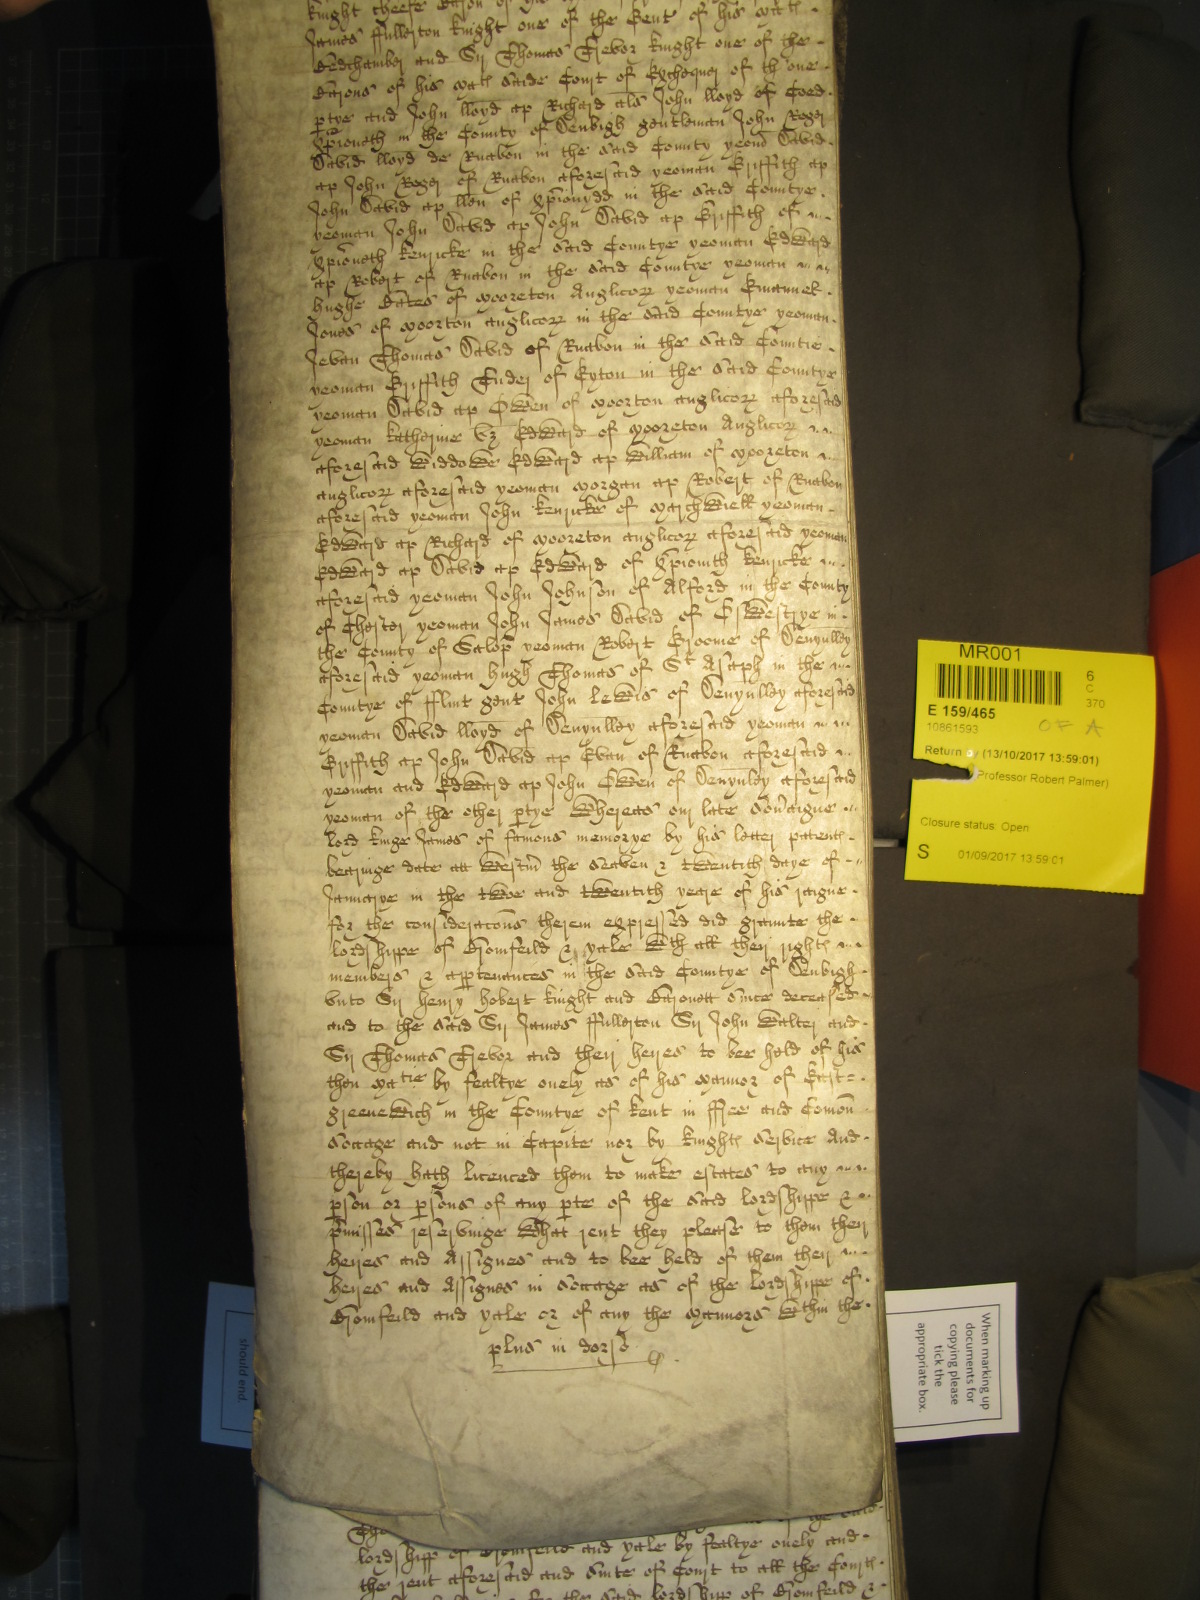 knight cheefe Baron of
James Fullerton knight one of the Gent of his Matis
Bedchamber and Sir Thomas Trevor knight one of the
Barons of his Matis saide Court of Exchequer of th one
ptye and John lloyd ap Richard als John lloyd of Coed
Xpioneth in the County of Denbigh gentleman John Roger
David lloyd de Ruabon in the said County yeom David
ap John Roger of Ruabon aforesaid yeoman Griffith ap
John David ap llen of Xpionydd in the said Countye
yeoman John David ap John David ap Griffith of
Xpioneth kenricke in the said Countye yeoman Edward
ap Robert of Ruabon in the said Countye yeoman
hughe Bates of Mooreton Anglicorz yeoman Emanuel
Jones of Moorton anglicorz in the said Countye yeoman
Jevan Thomas David of Ruabon in the said Countie
yeoman Griffith Tuder of Eyton in the said Countye
yeoman David ap Owen of Moorton anglicorz aforesaid
yeoman katherine vz Edward of Mooreton Anglicorz
aforesaid widdowe Edward ap William of Mooreton
anglicorz aforesaid yeoman Morgan ap Robert of Ruabon
aforesaid yeoman John kenricke of Marchwiell yeoman
Edward ap Richard of Mooreton anglicorz aforesaid yeoman
Edward ap David ap Edward of Xpionith kenricke
aforesaid yeoman John Johnson of Alford in the County
of Chester yeoman John James David of Oswestrye in
the County of Salop yeoman Robert Groome of Denynlley
aforesaid yeoman hugh Thomas of St Asaph in the
Countye of fflint gent John Lewis of Denynlley aforesaid
yeoman David lloyd of Denynlley aforesaid yeoman
Griffith ap John David ap Evan of Ruabon aforesaid
yeoman and Edward ap John Owen of Denynlley aforesaid
yeoman of the other ptye Whereas our late Sovaigne
lord kinge James of famous memorye by his letters patents
bearinge date att Westm the seaven & twentith daye of
Januarye in the twoe and twentith yeare of his raigne
for the consideracons therein expressed did graunte the
lordshippe of Bromfeild & yale wth all their rights
members & apptenances in the said Countye of Denbigh
vnto Sir henry hobert knight and Baronett since deceased
and to the said Sir James ffullerton Sir John Walter and
Sir Thomas Trevor and their heires to bee held of his
then Matie by fealtye onely as of his Mannor of East
greenewich in the Countye of kent in ffree and Comon
Soccage and not in Capite nor by knights service And
thereby hath licenced them to make estates to any
pson or psons of any pte of the said lordshippe &
pmisses reservinge what rent they please to them their
heires and Assignes and to bee held of them their
heires and Assignes in Soccage as of the lordshippe of
Bromfeild and yale or of any the Mannors wthin the
plus in dorso
lordshipp of Bromfeild and yale by fealtye onely and
the rent aforesaid and suite of Court to all the Courts
the said lordshipp of Bromfeild &
MR001
6
C
370
E 159/465
10861593
OF A
Return by (13/10/2017 13:59:01)
Professor Robert Palmer)
Closure status: Open
S 01/09/2017 13:59:01
When marking up
documents for
copying please
tick the
appropriate box.
should end.